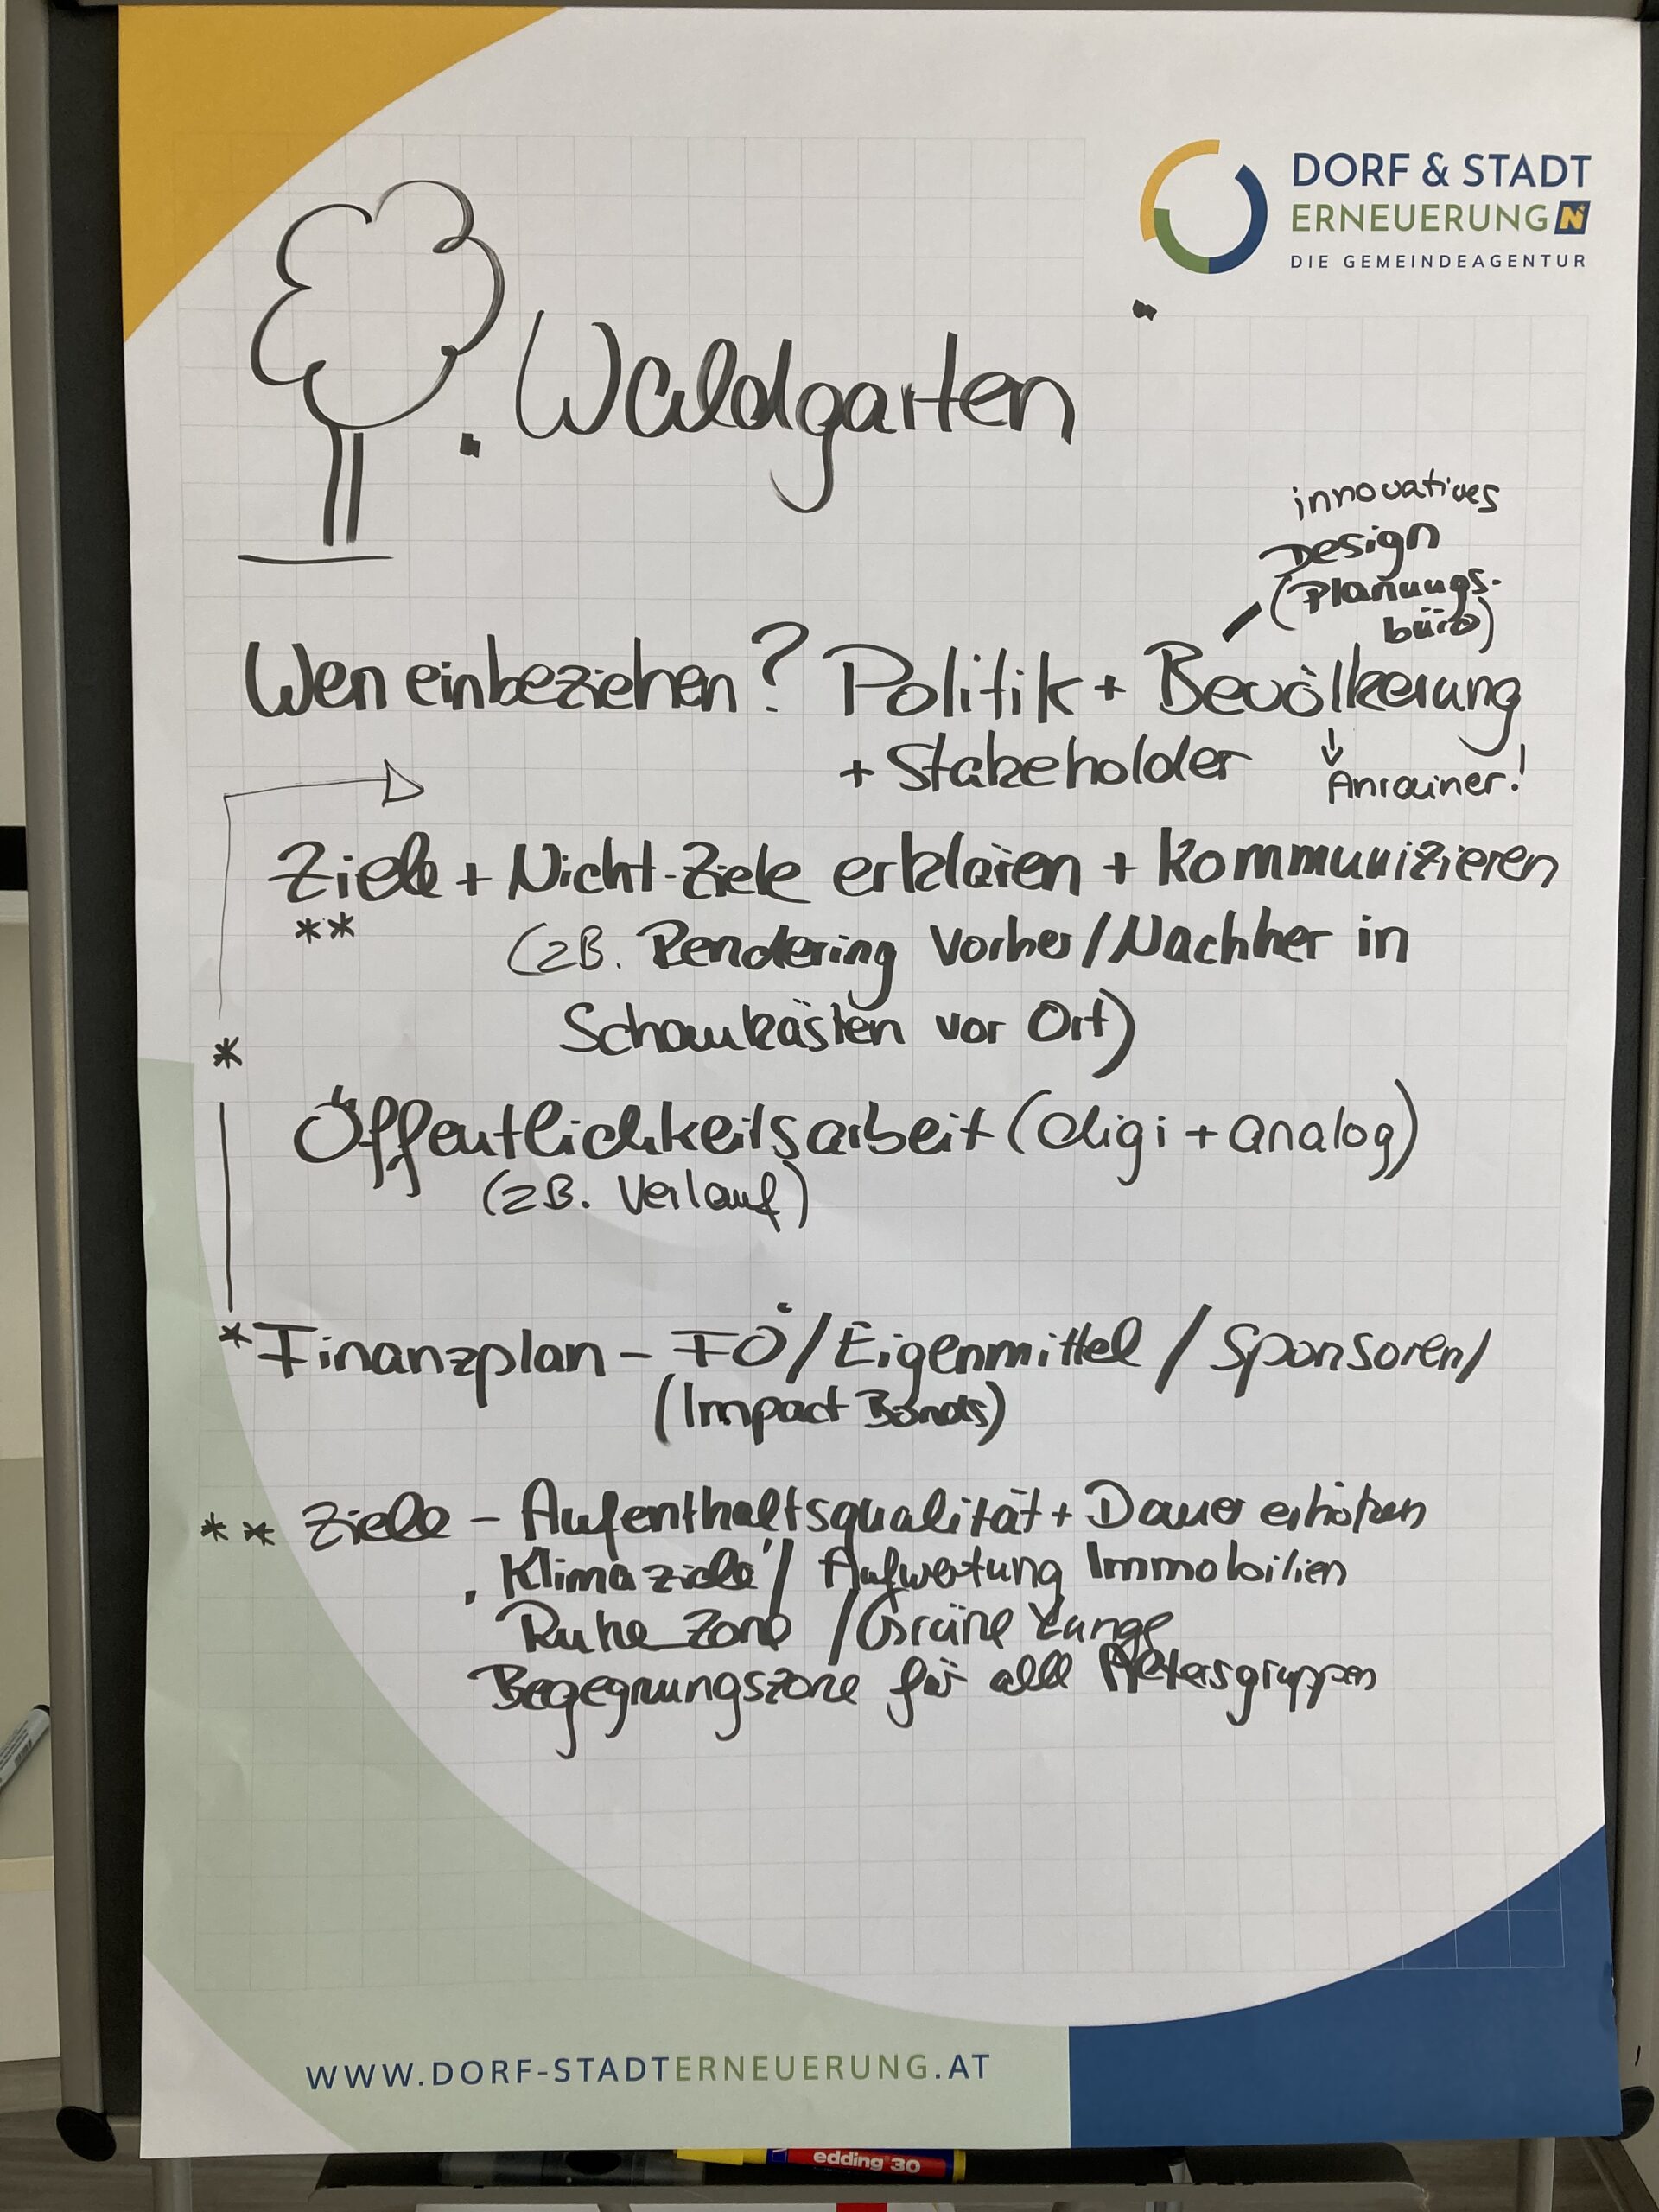 DORF & STADT
ERNEUERUNG N
DIE GEMEINDEAGENTUR
"Waldgarten"
innovatives
Design
(Planungs-
büro)
Wen einbeziehen? Politik + Bevölkerung
+ Stakeholder
↓ Anrainer!
Ziele + Nicht-Ziele erklären + kommunizieren
**
(zB. Rendering Vorher/Nachher in
Schaukästen vor Ort)
*
Öffentlichkeitsarbeit (digi + analog)
(zB. Verlauf)
* Finanzplan - FÖ/Eigenmittel / Sponsoren/
(Impact Bonds)
** Ziele - Aufenthaltsqualität + Dauer erhöhen
"Klimaziele" / Aufwertung Immobilien
Ruhe Zone / Grüne Lunge
Begegnungszone für alle Altersgruppen
WWW.DORF-STADTERNEUERUNG.AT
edding 30